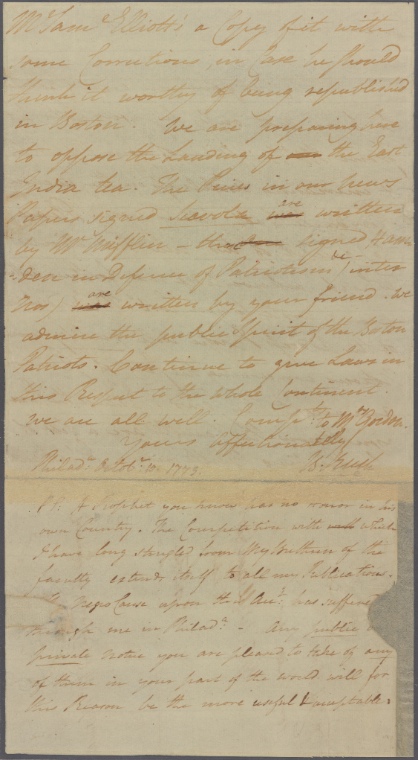 Mr. Saml. Elliott's a Copy of it with
some Corrections, in Case he should
think it worthy of being republished
in Boston. We are preparing here
to oppose the Landing of the East
India tea. The Pieces in our News
Papers signed Scevola are written
by Mr Mifflin — those signed Ham-
-den in Defence of Patriotism (inter
Nos) are written by your friend. We
admire the public Spirit of the Boston
Patriots. Continue to give Laws in
this Respect to the whole Continent.
We are all well. Compts. to Mr Gordon
Yours Affectionately
Philada. Octobr. 10. 1773 B. Rush
P.S. A Prophet you know has no honor in his
own Country. The Competition with which
I have long struggled from My Brethren of the
faculty extends itself to all my Publications.
The Negro Cause upon this Acct. has suffered
through me in Philada. — Any public or
private notice you are pleased to take of any
of them in your part of the world will for
this Reason be the more useful & acceptable.